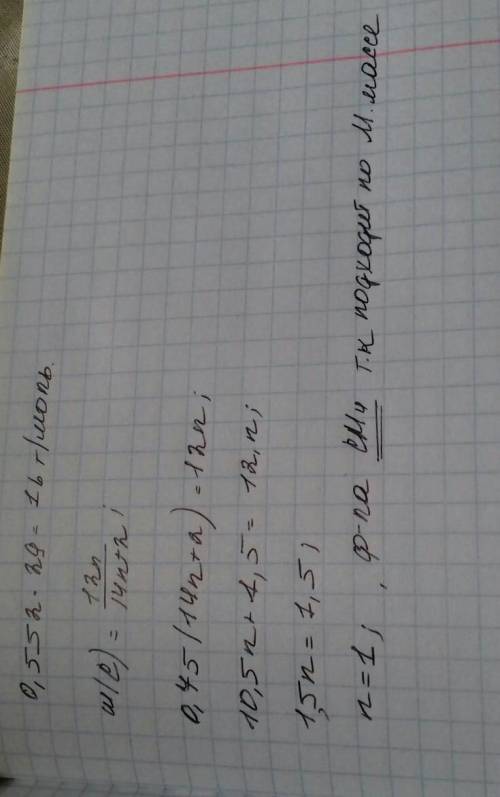 0,552 · 29 = 16 г/моль.
ω(C) = 12n / 14n+2 ;
0,75(14n+2) = 12n;
10,5n + 1,5 = 12,n;
1,5n = 1,5;
n = 1; , ф-ла CH4 т.к подходит по М. массе